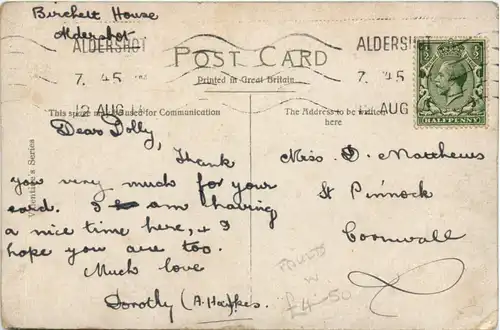 Birchett House
Aldershot
ALDERSHOT
7. 45
12 AUG
ALDERSHOT
7. 45
AUG
POST CARD
Printed in Great Britain
HALFPENNY
This space may be used for Communication
The Address to be written
here
Valentine's Series
Dear Dolly,
Thank
you very much for your
card. I am having
a nice time here, & I
hope you are too.
Much love
Dorothy (A. Hawkes.
Miss D. Matthews
St Pinnock
Cornwall
£4-50